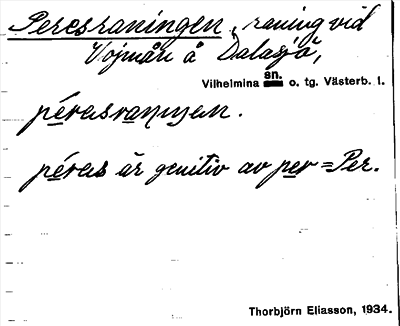 Peresraningen, raning vid
Vojmån å Dalasjö,
Vilhelmina sn. o. tg. Västerb. l.
pérasranıŋen.
péras är genitiv av per = Per.
Thorbjörn Eliasson, 1934.